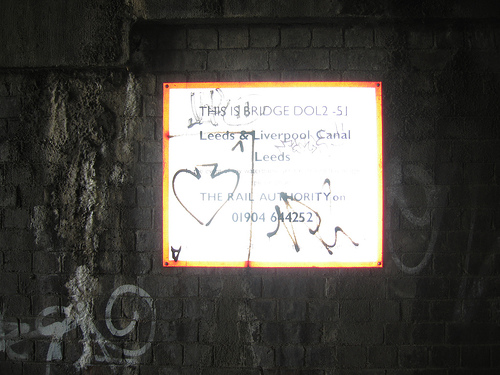 THIS IS BRIDGE DOL2 -51
Leeds & Liverpool Canal
Leeds
THE RAIL AUTHORITY on
01904 644252